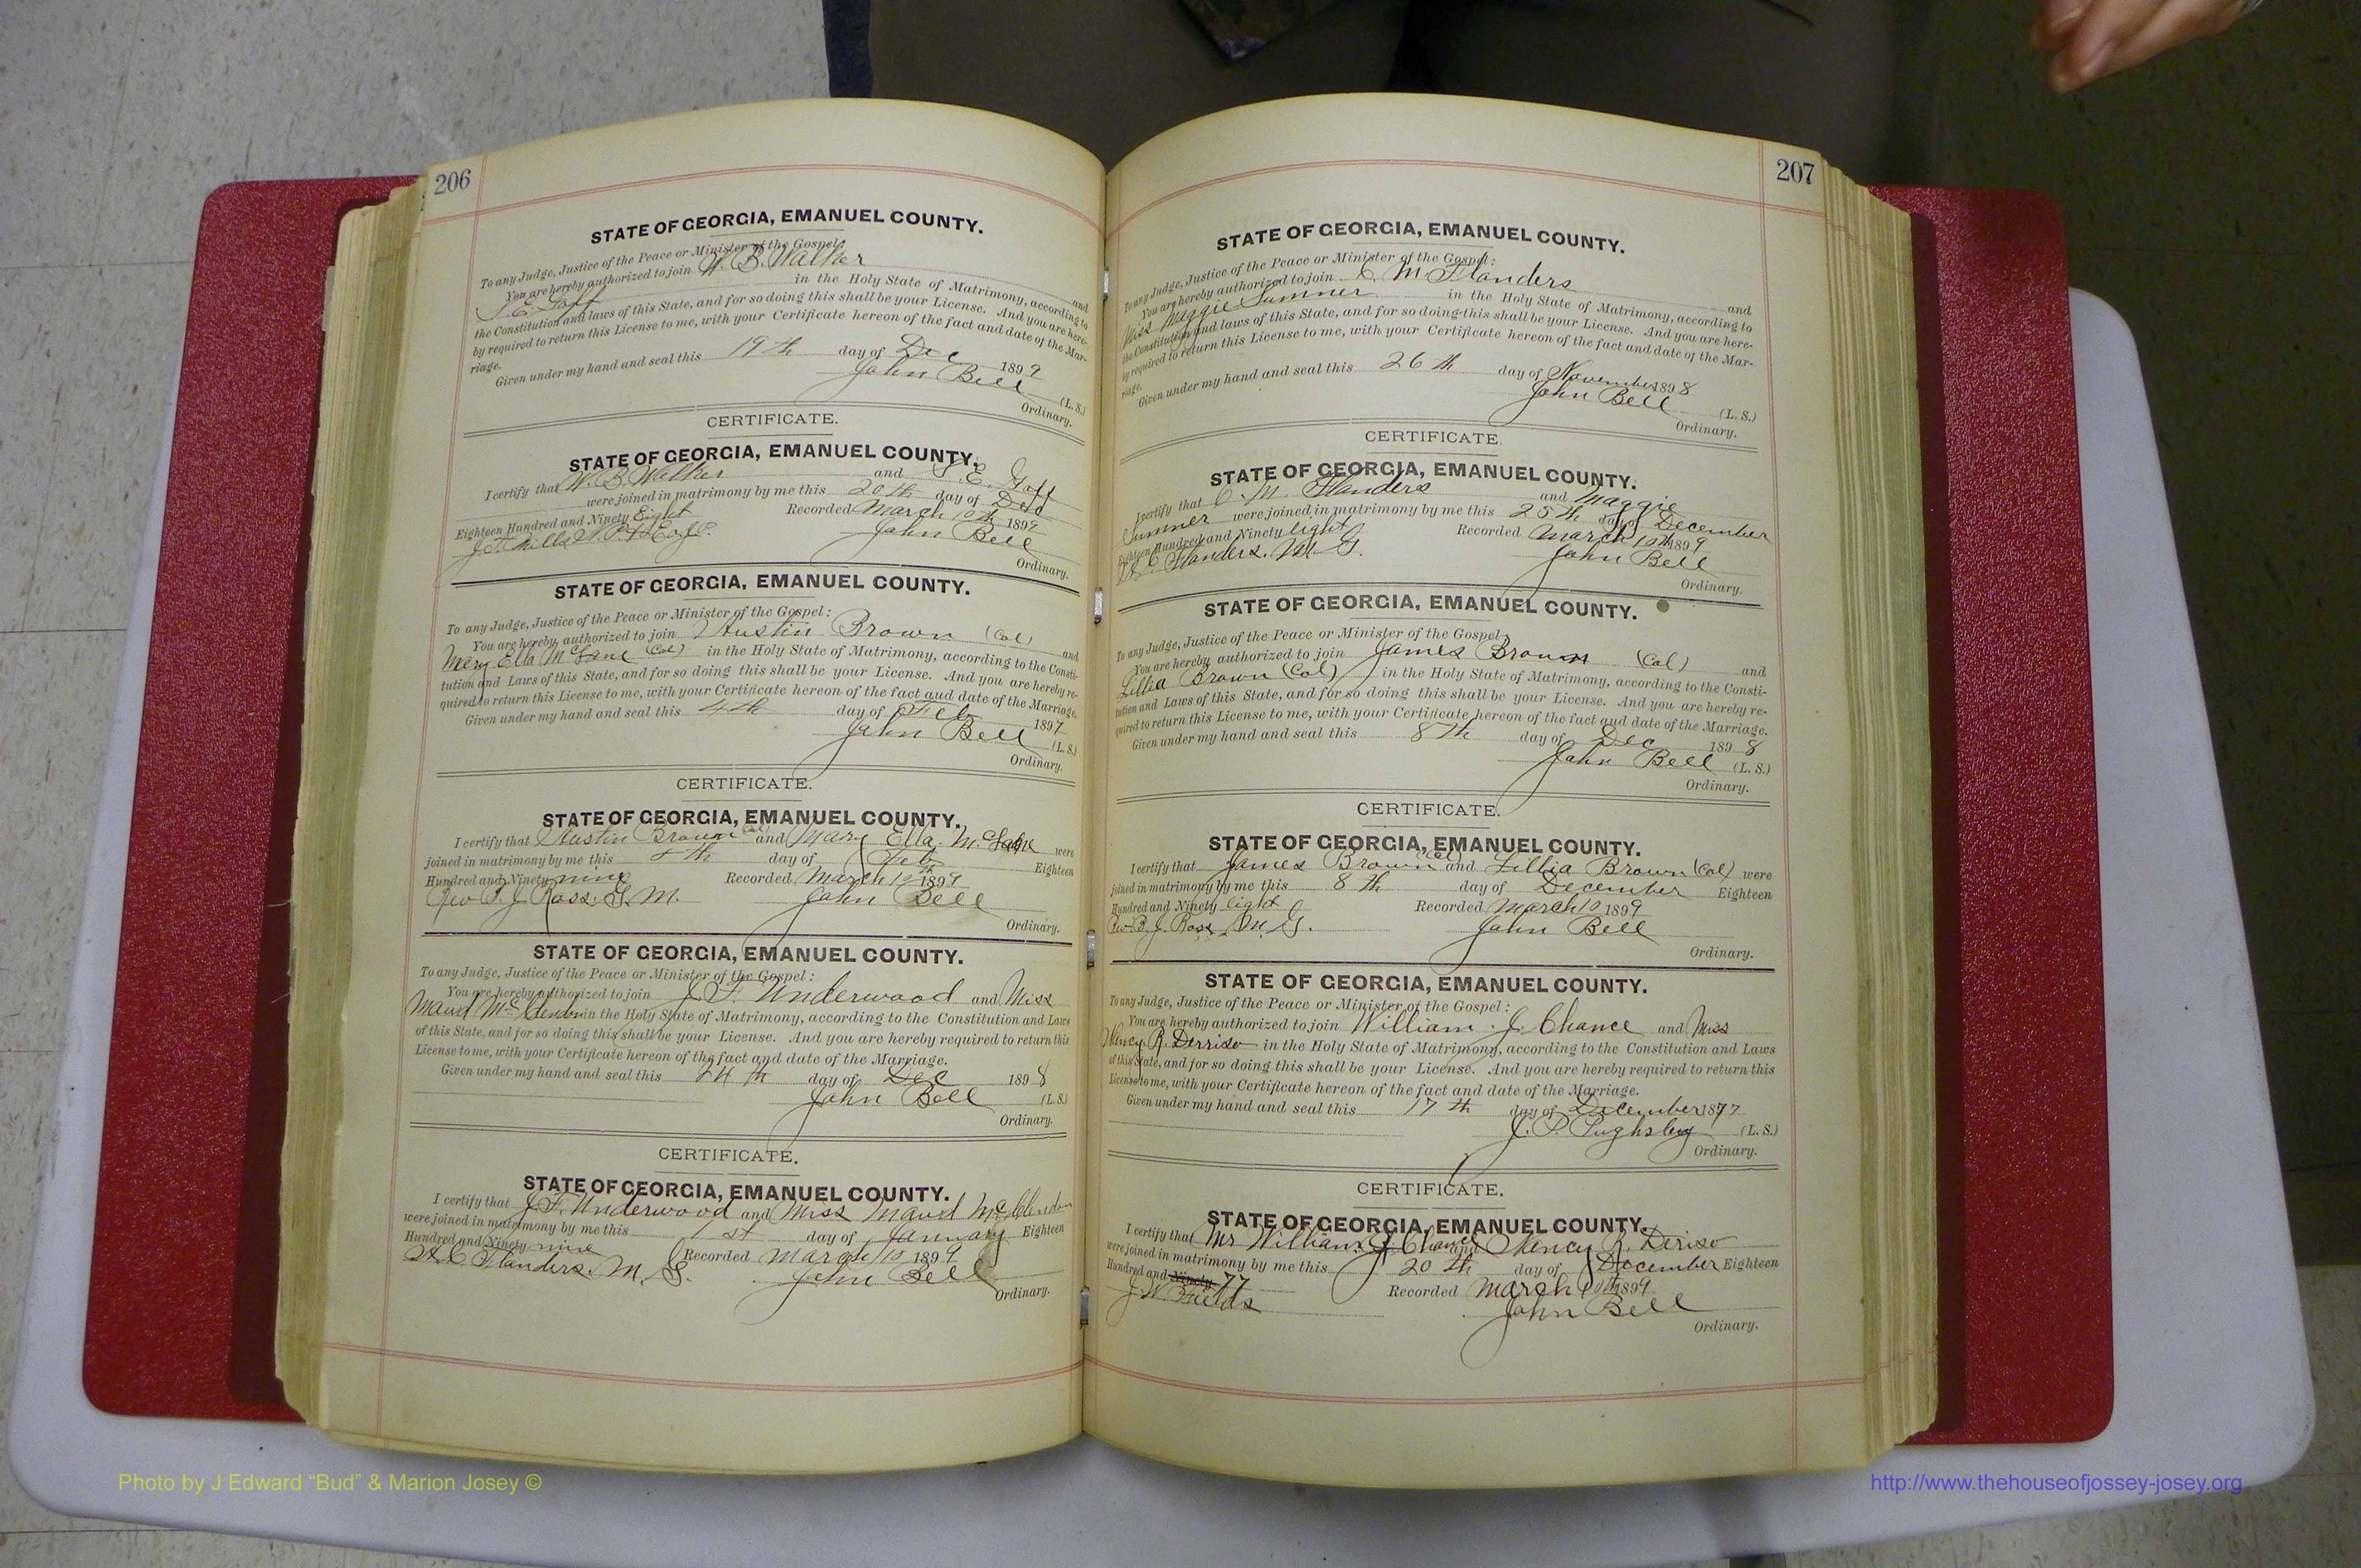 206
STATE OF GEORGIA, EMANUEL COUNTY.
To any Judge, Justice of the Peace or Minister of the Gospel:
You are hereby authorized to join W. B. Walker and
S. E. Goff in the Holy State of Matrimony, according to
the Constitution and laws of this State, and for so doing this shall be your License. And you are here-
by required to return this License to me, with your Certificate hereon of the fact and date of the Mar-
riage.
Given under my hand and seal this 19th day of Dec 189
John Bell (L. S.)
Ordinary.
CERTIFICATE.
STATE OF GEORGIA, EMANUEL COUNTY.
I certify that W. B. Walker and S. E. Goff
were joined in matrimony by me this 20th day of Dec
Eighteen Hundred and Ninety Eight Recorded March 10th 1899
J. F. Mills John Bell
Ordinary.
STATE OF GEORGIA, EMANUEL COUNTY.
To any Judge, Justice of the Peace or Minister of the Gospel:
You are hereby authorized to join Austin Brown (Col) and
Mary Ella McLane (Col) in the Holy State of Matrimony, according to the Consti-
tution and Laws of this State, and for so doing this shall be your License. And you are hereby re-
quired to return this License to me, with your Certificate hereon of the fact and date of the Marriage.
Given under my hand and seal this 4th day of Feb 189
John Bell (L. S.)
Ordinary.
CERTIFICATE.
STATE OF GEORGIA, EMANUEL COUNTY.
I certify that Austin Brown (Col) and Mary Ella McLane were
joined in matrimony by me this day of Feb Eighteen
Hundred and Ninety nine Recorded March 10th 1899
Rev Ross. G. M. John Bell
Ordinary.
STATE OF GEORGIA, EMANUEL COUNTY.
To any Judge, Justice of the Peace or Minister of the Gospel:
You are hereby authorized to join J. F. Underwood and Miss
Maud McClendon in the Holy State of Matrimony, according to the Constitution and Laws
of this State, and for so doing this shall be your License. And you are hereby required to return this
License to me, with your Certificate hereon of the fact and date of the Marriage.
Given under my hand and seal this 24th day of Dec 1898
John Bell (L. S.)
Ordinary.
CERTIFICATE.
STATE OF GEORGIA, EMANUEL COUNTY.
I certify that J. F. Underwood and Miss Maud McClendon
were joined in matrimony by me this 1st day of January Eighteen
Hundred and Ninety nine Recorded March 10 1899
Flanders. M. G. John Bell
Ordinary.
207
STATE OF GEORGIA, EMANUEL COUNTY.
To any Judge, Justice of the Peace or Minister of the Gospel:
You are hereby authorized to join C. M. Flanders and
Miss Maggie Sumner in the Holy State of Matrimony, according to
the Constitution and laws of this State, and for so doing this shall be your License. And you are here-
by required to return this License to me, with your Certificate hereon of the fact and date of the Mar-
riage.
Given under my hand and seal this 26th day of November 1898
John Bell (L. S.)
Ordinary.
CERTIFICATE.
STATE OF GEORGIA, EMANUEL COUNTY.
I certify that C. M. Flanders and Maggie
Sumner were joined in matrimony by me this 25th day of December
Eighteen Hundred and Ninety Eight Recorded March 10th 1899
Flanders. M. G. John Bell
Ordinary.
STATE OF GEORGIA, EMANUEL COUNTY.
To any Judge, Justice of the Peace or Minister of the Gospel:
You are hereby authorized to join James Brown (Col) and
Lillia Brown (Col) in the Holy State of Matrimony, according to the Consti-
tution and Laws of this State, and for so doing this shall be your License. And you are hereby re-
quired to return this License to me, with your Certificate hereon of the fact and date of the Marriage.
Given under my hand and seal this 8th day of Dec 1898
John Bell (L. S.)
Ordinary.
CERTIFICATE.
STATE OF GEORGIA, EMANUEL COUNTY.
I certify that James Brown (Col) and Lillia Brown (Col) were
joined in matrimony by me this 8th day of December Eighteen
Hundred and Ninety Eight Recorded March 10 1899
Rev B. J. Ross, M. G. John Bell
Ordinary.
STATE OF GEORGIA, EMANUEL COUNTY.
To any Judge, Justice of the Peace or Minister of the Gospel:
You are hereby authorized to join William. J. Chance and Miss
Nancy R. Derriso in the Holy State of Matrimony, according to the Constitution and Laws
of this State, and for so doing this shall be your License. And you are hereby required to return this
License to me, with your Certificate hereon of the fact and date of the Marriage.
Given under my hand and seal this 17th day of December 1877
J. P. Pughsley (L. S.)
Ordinary.
CERTIFICATE.
STATE OF GEORGIA, EMANUEL COUNTY.
I certify that Mr William. J. Chance and Nancy R. Deriso
were joined in matrimony by me this 20th day of December Eighteen
Hundred and Ninety 77 Recorded March 10th 1899
J. W. Fields John Bell
Ordinary.
Photo by J Edward “Bud” & Marion Josey ©
http://www.thehouseofjossey-josey.org